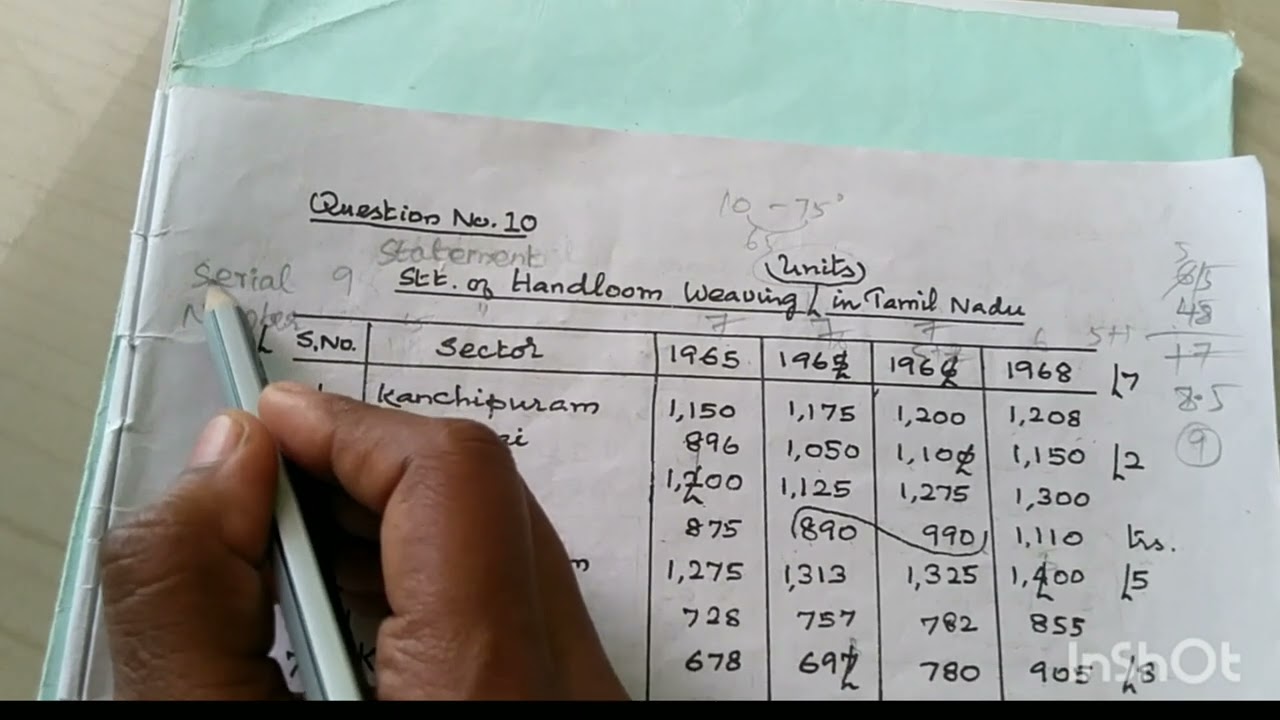 Question No. 10
10 - 75
65
Statement
Serial 9
Stt. of Handloom Weaving in Tamil Nadu
(Units)
7 7 7 6 5+1
S.No. Sector 1965 196 196 1968 7
Kanchipuram 1,150 1,175 1,200 1,208
896 1,050 1,10 1,150 2
1, 00 1,125 1,275 1,300
875 890 990 1,110 trs.
1,275 1,313 1,325 1, 00 5
728 757 782 855
678 69 780 905 3
48
17
8.5
9
InShOt